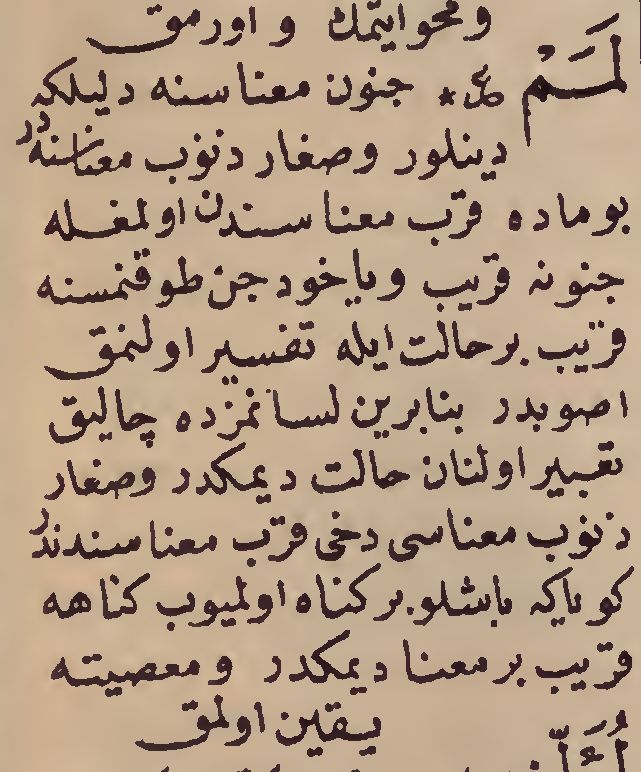 و محو ایتمك و اورمق
لَمَمْ جنون معناسنه دلیلکه
دینلور وصغار ذنوب معناسنه در
بو ماده قرب معناسندن اولمغله
جنونه قریب و یاخود جن طوقنمسنه
قریب بر حالت ایله تفسیر اولنمق
اصوبدر بنابرین لسانمزده چالیق
تعبیر اولنان حالت دیمکدر وصغار
ذنوب معناسی دخی قرب معناسندندر
کویاکه باشلو بر کناه اولمیوب کناهه
قریب بر معنا دیمکدر و معصیته
یقین اولمق